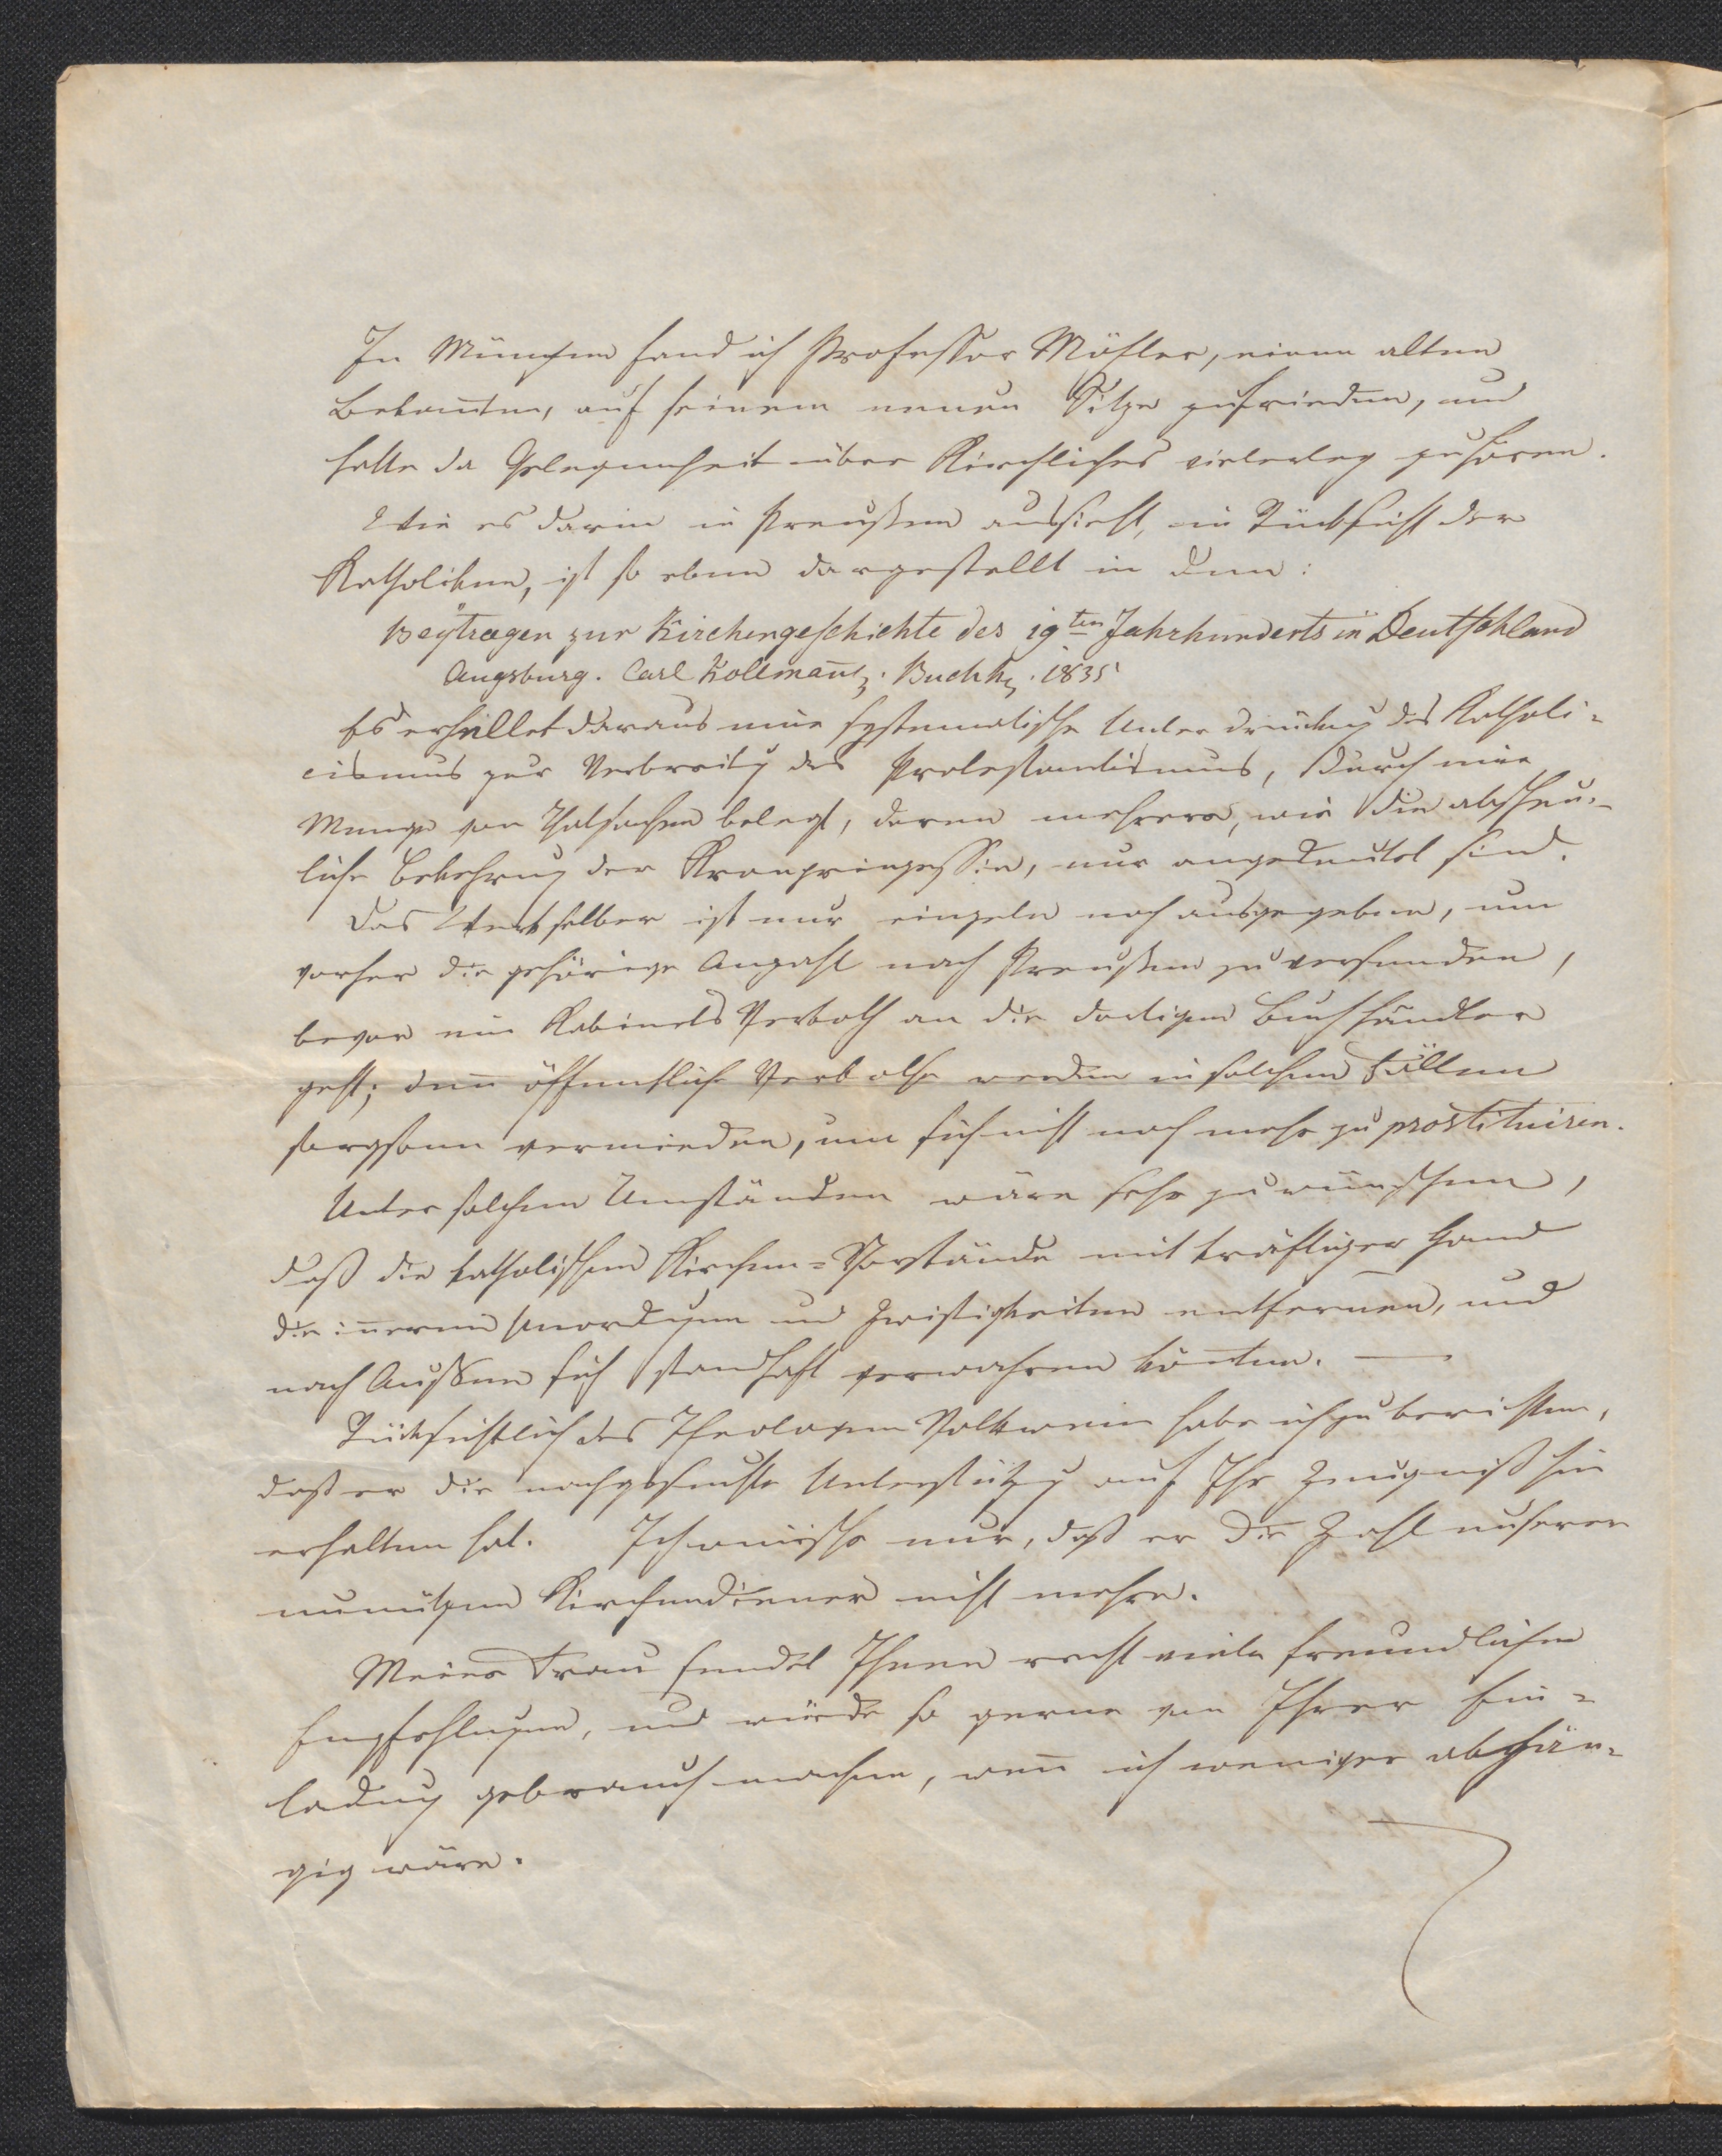 In München fand ich Professor Möhler, einen alten
Bekannten, auf seinem neuen Sitze zufrieden, und
hatte da Gelegenheit über Kirchliches vielerley zu hören.
Wie es darin in Preußen aussieht, in Rücksicht der
Katholiken, ist so eben dargestellt in den:
Beÿtraegen zur Kirchengeschichte des 19ten Jahrhunderts in Deutschland
Augsburg. Carl Kollmann. Buchh. 1835
Es erhellet daraus eine systematische Unterdrückung des Katholi-
cismus zur Verbreitg des Protestantismus, durch eine
Menge von Thatsachen belegt, deren mehrere, wie die abscheu-
liche Bekehrung der Kronprinzessin, nur angedeutet sind.
Das Werk selber ist nur einzeln noch ausgegeben, um
vorher die gehörige Anzahl nach Preußen zu versenden,
bevor ein Kabinets Verboth an die dortigen Buchhändler
geht; denn öffentliche Verbothe werden in solchen Fällen
sorgsam vermieden, um sich nicht noch mehr zu prostituiren.
Unter solchen Umständen wäre sehr zu wünschen,
daß die katholischen Kirchen-Vorstände mit kräftiger Hand
die inneren Unordngen und Zwistigkeiten entfernen, und
nach Aussen sich standhaft verwahren könnten. —
Rücksichtlich des Theologen Volkwein habe ich zu berichten,
daß er die nachgesuchte Unterstützg auf Ihr Zeugniß hin
erhalten hat. Ich wünsche nur, daß er die Zahl unserer
unnützen Kirchendiener nicht mehre.
Meine Frau sendet Ihnen recht viele freundlichen
Empfehlungen, und würde so gerne von Ihrer Ein-
ladung gebrauch machen, wenn ich weniger abhän-
gig wäre.